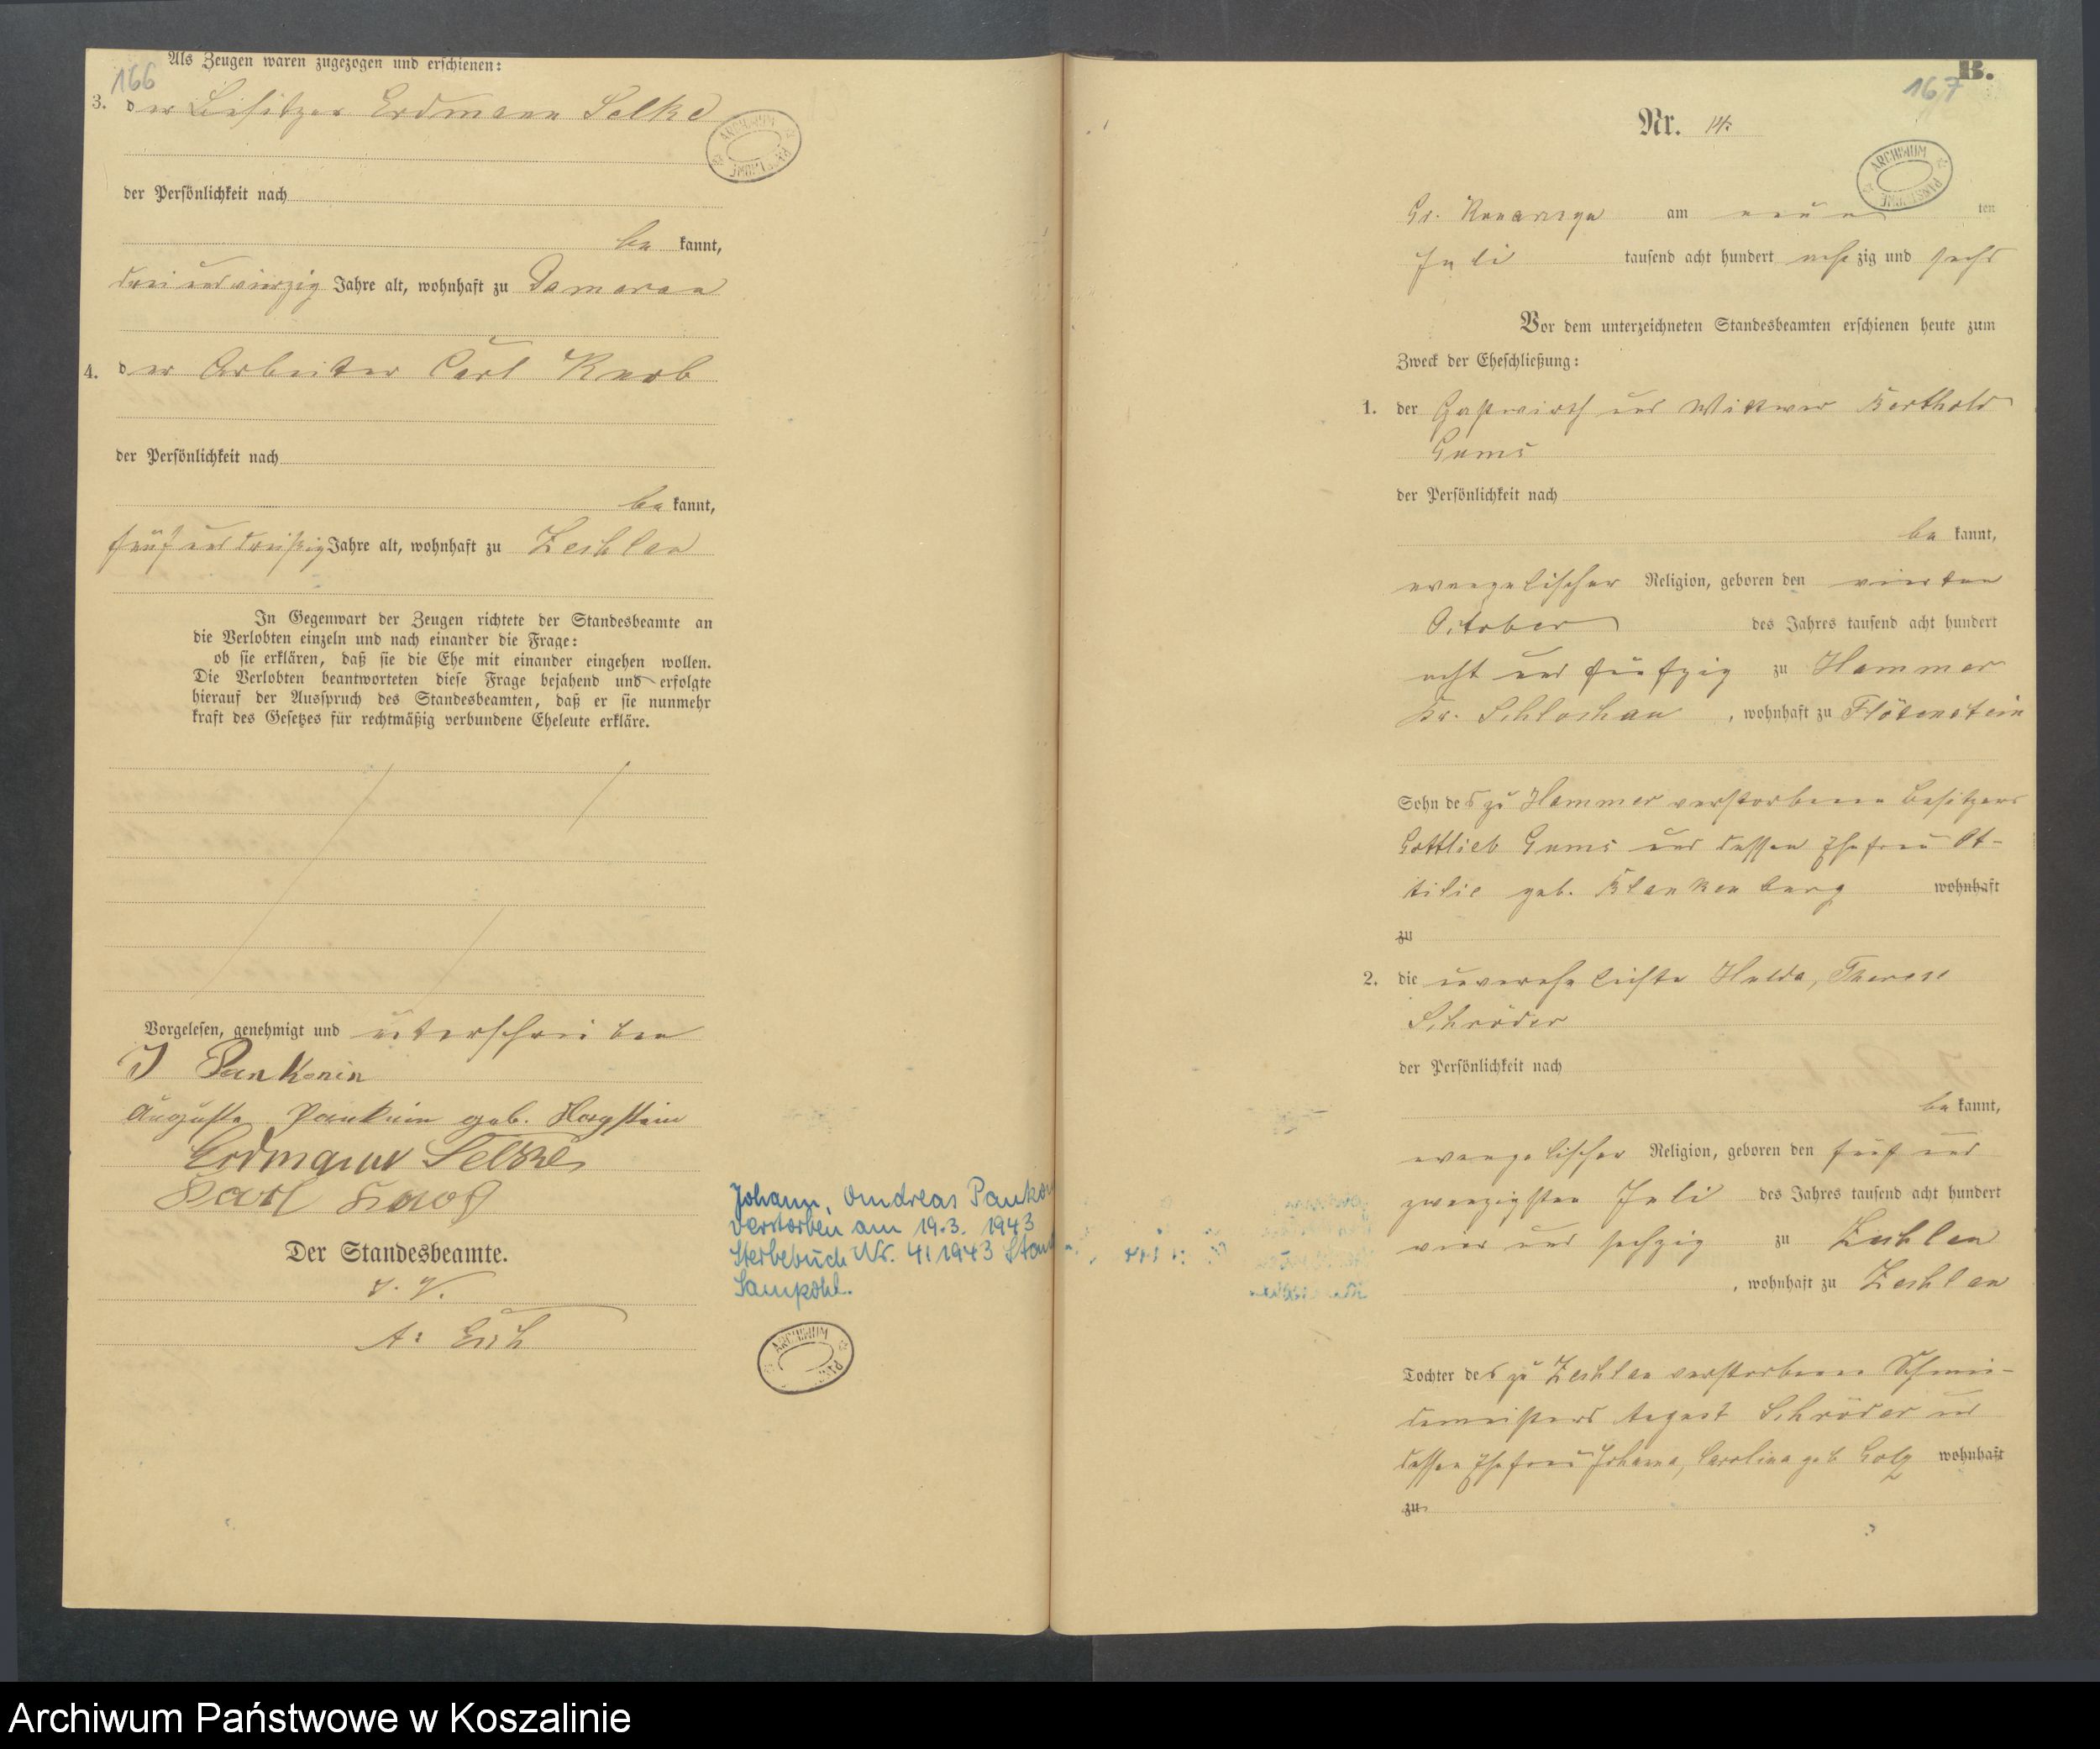 166
Als Zeugen waren zugezogen und erschienen:
3. der Besitzer Erdmann Selke
der Persönlichkeit nach
be kannt,
drei und vierzig Jahre alt, wohnhaft zu Damerau
4. der Arbeiter Carl Knob
der Persönlichkeit nach
be kannt,
fünf und dreißig Jahre alt, wohnhaft zu Zechlau
In Gegenwart der Zeugen richtete der Standesbeamte an
die Verlobten einzeln und nach einander die Frage:
ob sie erklären, daß sie die Ehe mit einander eingehen wollen.
Die Verlobten beantworteten diese Frage bejahend und erfolgte
hierauf der Ausspruch des Standesbeamten, daß er sie nunmehr
kraft des Gesetzes für rechtmäßig verbundene Eheleute erkläre.
Vorgelesen, genehmigt und unterschrieben
J Pankonin
Auguste Pankonin geb.
Erdmann Selke
Karl
Der Standesbeamte.
J. V.
Johann, Andreas Panko
verstorben am 19.3. 1943
Sterbebuch Nr. 4/1943 Stand
Sampohl.
ARCHIWUM PAŃSTWOWE
ARCHIWUM
167
B.
Nr. 14.
ARCHIWUM PAŃSTWOWE
Gr. Konarczyn am neun ten
Juli tausend acht hundert acht zig und sechs
Vor dem unterzeichneten Standesbeamten erschienen heute zum
Zweck der Eheschließung:
1. der Gastwirth und Wittwer Berthold
Gums
der Persönlichkeit nach
be kannt,
evangelischer Religion, geboren den vierten
October des Jahres tausend acht hundert
acht und fünfzig zu Hammer
Kr. Schlochau, wohnhaft zu Flötenstein
Sohn des zu Hammer verstorbenen Besitzers
Gottlieb Gums und dessen Ehefrau Ot-
tilie geb. Blankenburg wohnhaft
zu
2. die unverehelichte Hulda, Therese
Schröder
der Persönlichkeit nach
be kannt,
evangelischer Religion, geboren den fünf und
zwanzigsten Juli des Jahres tausend acht hundert
vier und sechzig zu Zechlau
, wohnhaft zu Zechlau
Tochter des zu Zechlau verstorbenen Schmie-
demeisters August Schröder und
dessen Ehefrau Johanna, Carolina geb Golz wohnhaft
zu
Archiwum Państwowe w Koszalinie